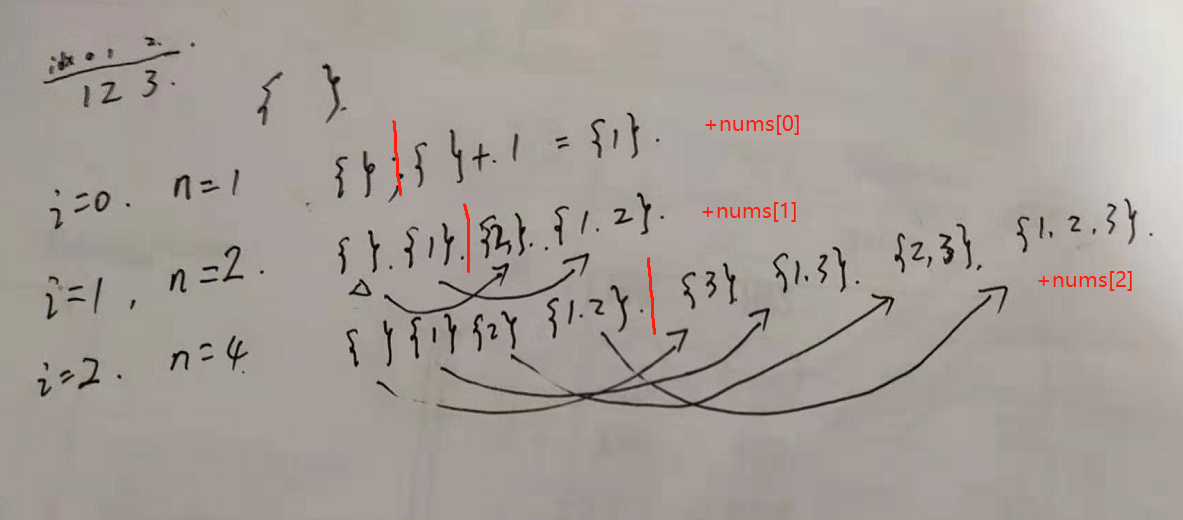 idx 0 1 2.
1 2 3.
{ }.
i=0. n=1 {};{ }+.1 = {1}. +nums[0]
i=1, n=2. {}.{1}.{2}.{1.2}. +nums[1]
i=2. n=4 { }{1}{2}{1.2}.{3}{1.3}.{2,3}.{1.2,3}. +nums[2]